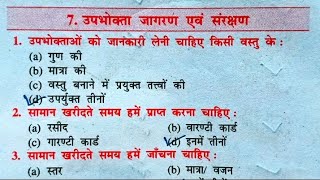 7. उपभोक्ता जागरण एवं संरक्षण
1. उपभोक्ताओं को जानकारी लेनी चाहिए किसी वस्तु के :
(a) गुण की
(b) मात्रा की
(c) वस्तु बनाने में प्रयुक्त तत्त्वों की
(d) उपर्युक्त तीनों
2. सामान खरीदते समय हमें प्राप्त करना चाहिए :
(a) रसीद (b) वारण्टी कार्ड
(c) गारण्टी कार्ड (d) इनमें तीनों
3. सामान खरीदते समय हमें जाँचना चाहिए :
(a) स्तर (b) मात्रा/ वजन